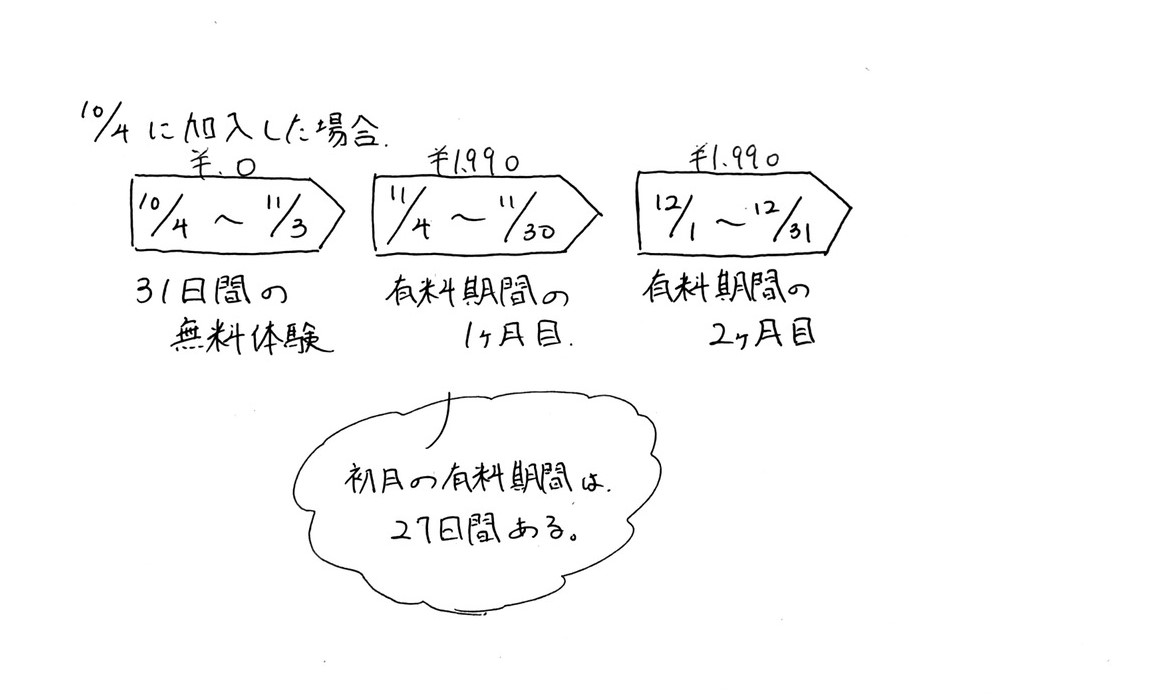 10/4 に加入した場合.
¥.0
¥1.990
¥1.990
10/4 ～ 11/3
11/4 ～ 11/30
12/1 ～ 12/31
31日間の
無料体験
有料期間の
1ヶ月目.
有料期間の
2ヶ月目
初月の有料期間は.
27日間ある。